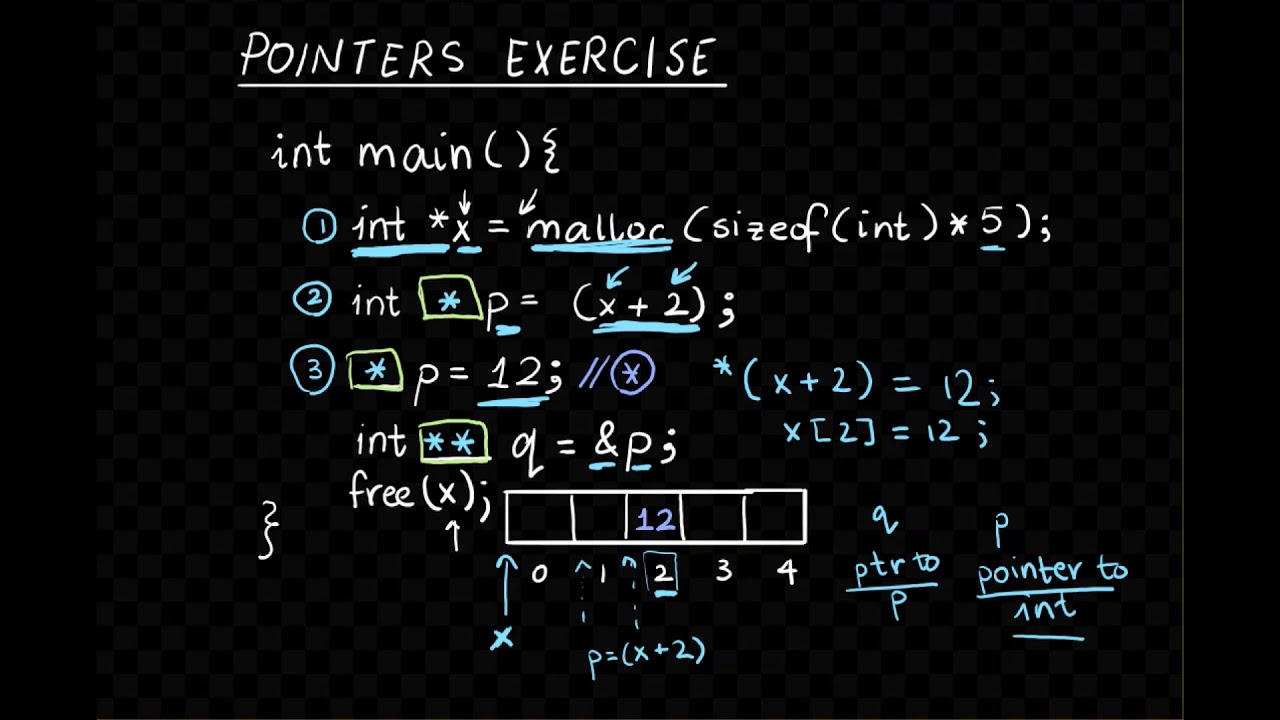 POINTERS EXERCISE
int main(){
① int *x = malloc(sizeof(int) * 5);
② int * p = (x + 2);
③ * p = 12; // ⊛
*(x+2) = 12;
x[2] = 12;
int ** q = &p;
free(x);
}
12
0 1 2 3 4
x
p=(x+2)
q
ptr to
p
p
pointer to
int